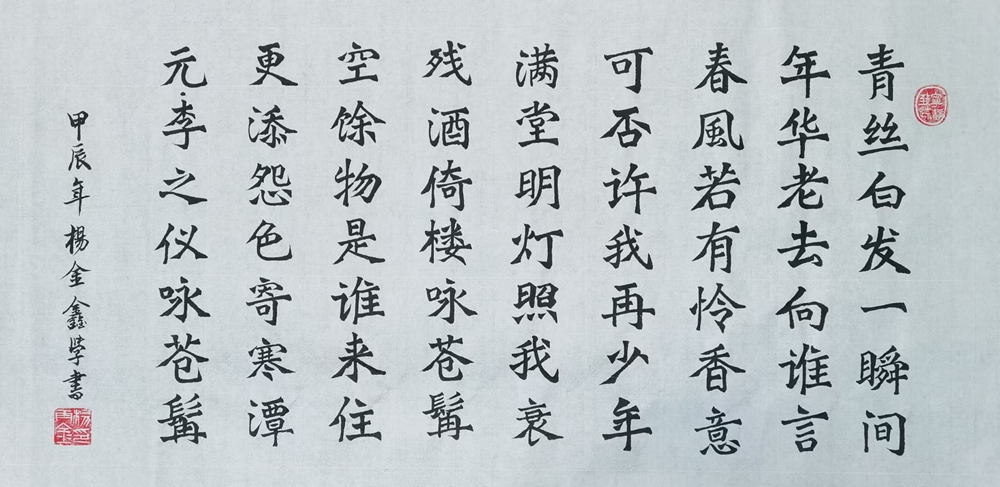 青丝白发一瞬间
年华老去向谁言
春風若有怜香意
可否许我再少年
满堂明灯照我衰
残酒倚楼咏苍髯
空馀物是谁来住
更添怨色寄寒潭
元·李之仪咏苍髯
甲辰年楊金鑫学書